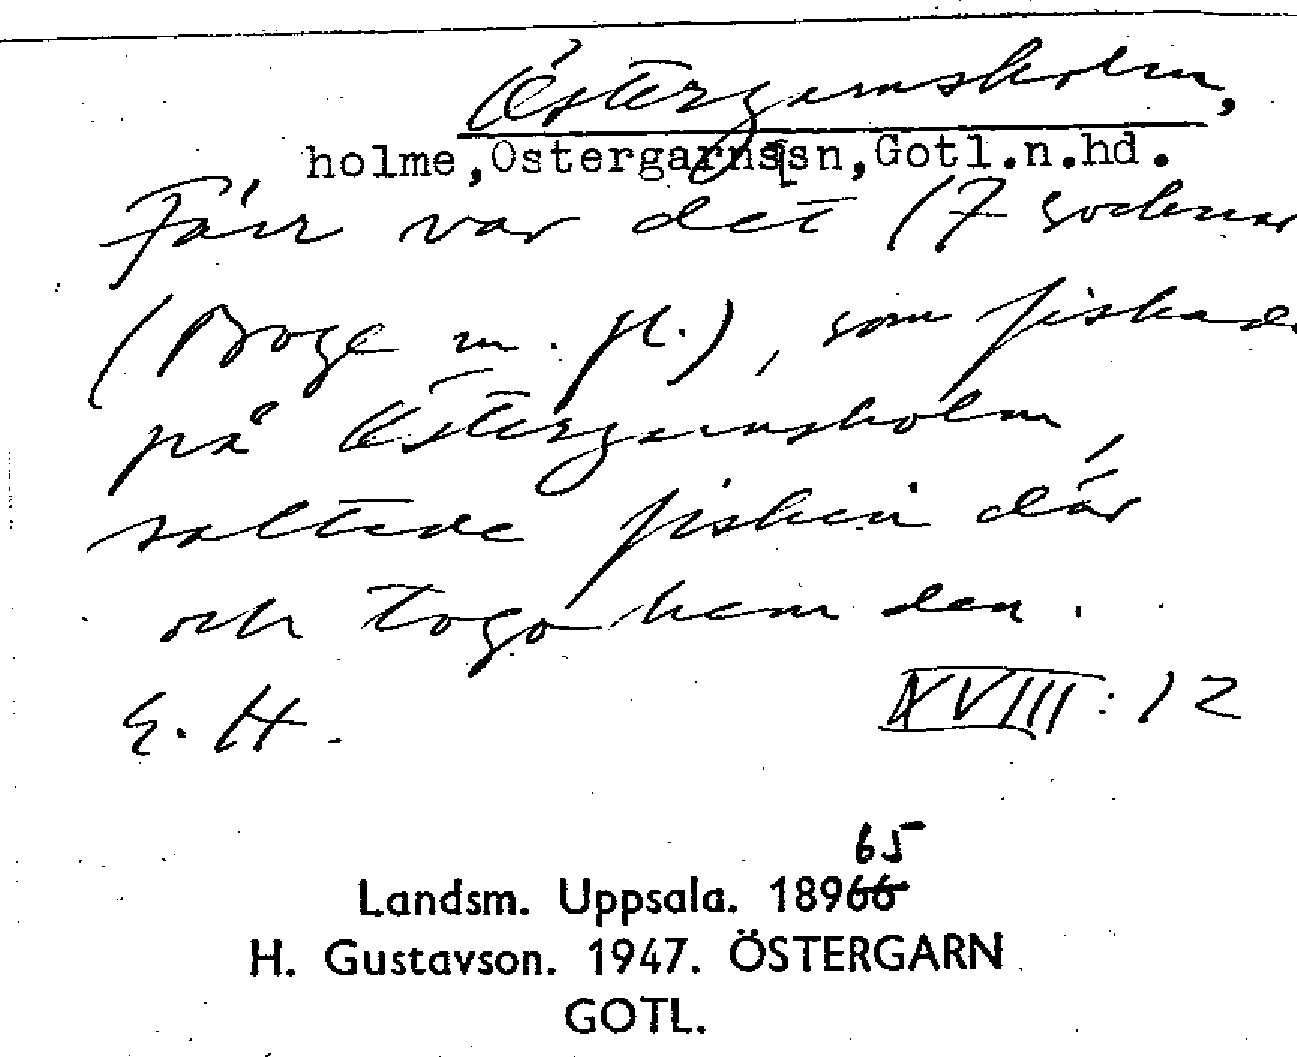 Östergarnsholm,
holme, Östergarns sn, Gotl.n.hd.
Förr var det 17 socknar
(Boge m. fl.), som fiskade
på Östergarnsholm,
saltade fisken där
och togo hem den.
E. H. XVIII: 12
65
Landsm. Uppsala. 18966
H. Gustavson. 1947. ÖSTERGARN
GOTL.